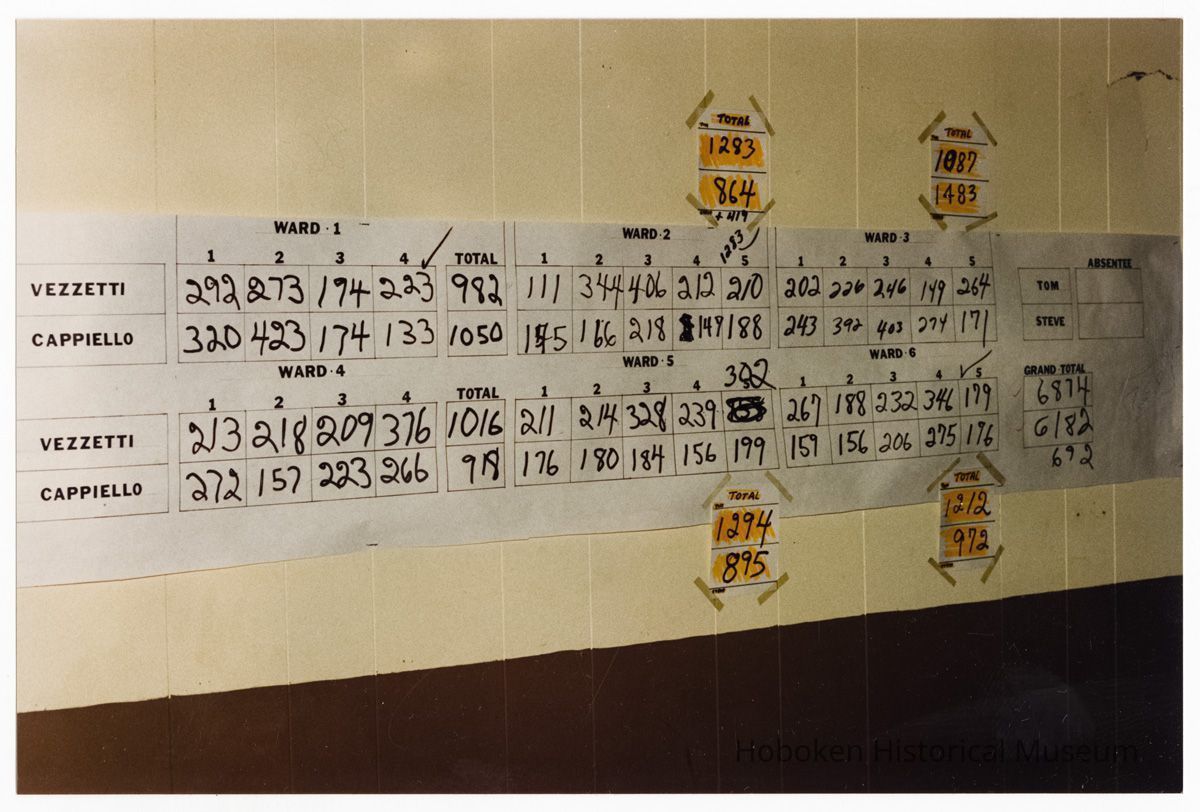 TOTAL
1283
864
+ 419
TOTAL
1087
1483
WARD · 1
WARD · 2
1283
WARD · 3
1 2 3 4 TOTAL 1 2 3 4 5 1 2 3 4 5 ABSENTEE
VEZZETTI 292 273 194 223 982 111 344 406 212 210 202 226 246 149 264 TOM
CAPPIELLO 320 423 174 133 1050 145 166 218 147 188 243 392 403 274 171 STEVE
WARD · 4 WARD · 5 WARD · 6
302
1 2 3 4 TOTAL 1 2 3 4 5 1 2 3 4 5 GRAND TOTAL
VEZZETTI 213 218 209 376 1016 211 214 328 239 267 188 232 346 179 6874
CAPPIELLO 272 157 223 266 918 176 180 184 156 199 159 156 206 275 176 6182
692
TOTAL
1294
895
TOTAL
1212
972
Hoboken Historical Museum